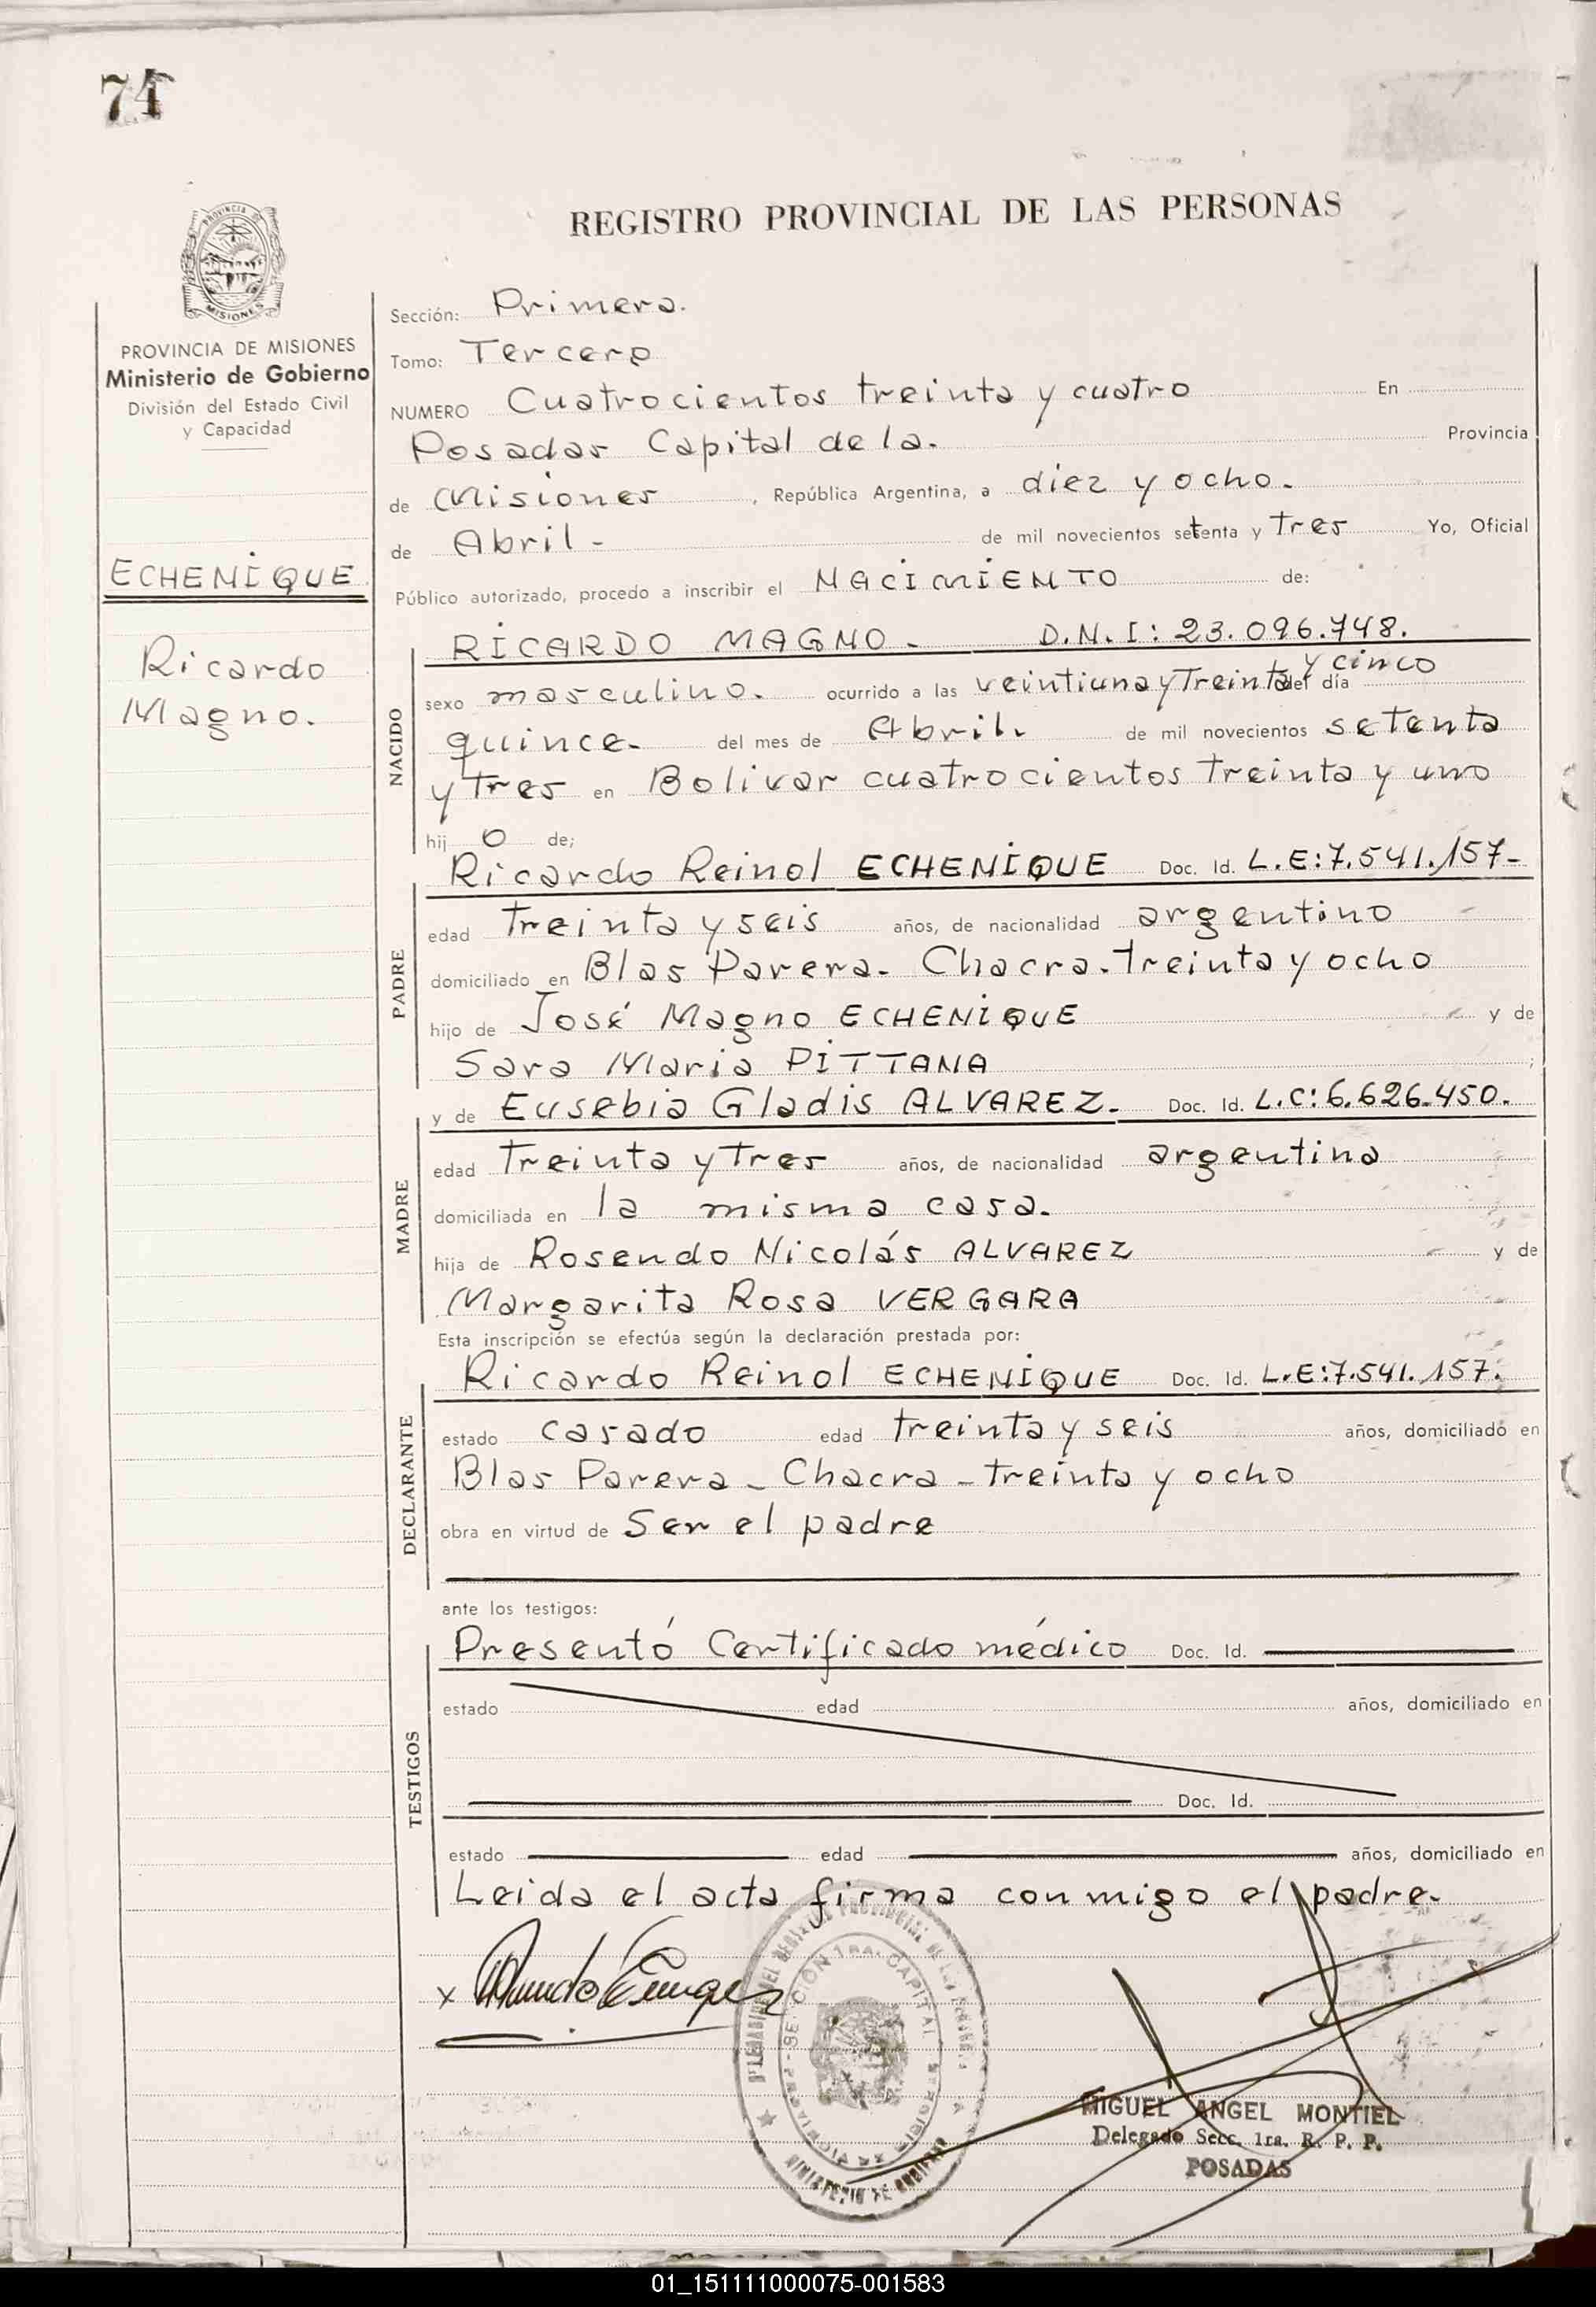 74
REGISTRO PROVINCIAL DE LAS PERSONAS
PROVINCIA DE
MISIONES
PROVINCIA DE MISIONES
Ministerio de Gobierno
División del Estado Civil
y Capacidad
ECHENIQUE
Ricardo
Magno.
Sección: Primera.
Tomo: Tercero
NUMERO Cuatrocientos treinta y cuatro En
Posadas Capital de la. Provincia
de Misiones, República Argentina, a diez y ocho.
de Abril - de mil novecientos setenta y Tres Yo, Oficial
Público autorizado, procedo a inscribir el NACIMIENTO de:
RICARDO MAGNO. D.N.I: 23.096.748.
sexo masculino. ocurrido a las veintiuna y Treinta y cinco del día
quince. del mes de Abril. de mil novecientos setenta
y Tres en Bolivar cuatrocientos Treinta y uno
hijo de;
Ricardo Reinol ECHENIQUE Doc. Id. L.E:7.541.157-
edad treinta y seis años, de nacionalidad argentino
domiciliado en Blas Parera. Chacra. treinta y ocho
hijo de José Magno ECHENIQUE y de
Sara Maria PITTANA ;
y de Eusebia Gladis ALVAREZ. Doc. Id. L.C:6.626.450.
edad Treinta y Tres años, de nacionalidad argentina
domiciliada en la misma casa.
hija de Rosendo Nicolás ALVAREZ y de
Margarita Rosa VERGARA
Esta inscripción se efectúa según la declaración prestada por:
Ricardo Reinol ECHENIQUE Doc. Id. L.E:7.541.157.
estado casado edad treinta y seis años, domiciliado en
Blas Parera - Chacra - treinta y ocho
obra en virtud de Ser el padre
ante los testigos:
Presentó Certificado médico Doc. Id.
estado edad años, domiciliado en
Doc. Id.
estado edad años, domiciliado en
Leida el acta firma conmigo el padre.
NACIDO
PADRE
MADRE
DECLARANTE
TESTIGOS
x
SECCION 1RA. CAPITAL
MINISTERIO DE GOBIERNO
MIGUEL ANGEL MONTIEL
Delegado Secc. 1ra. R. P. P.
POSADAS
01_151111000075-001583